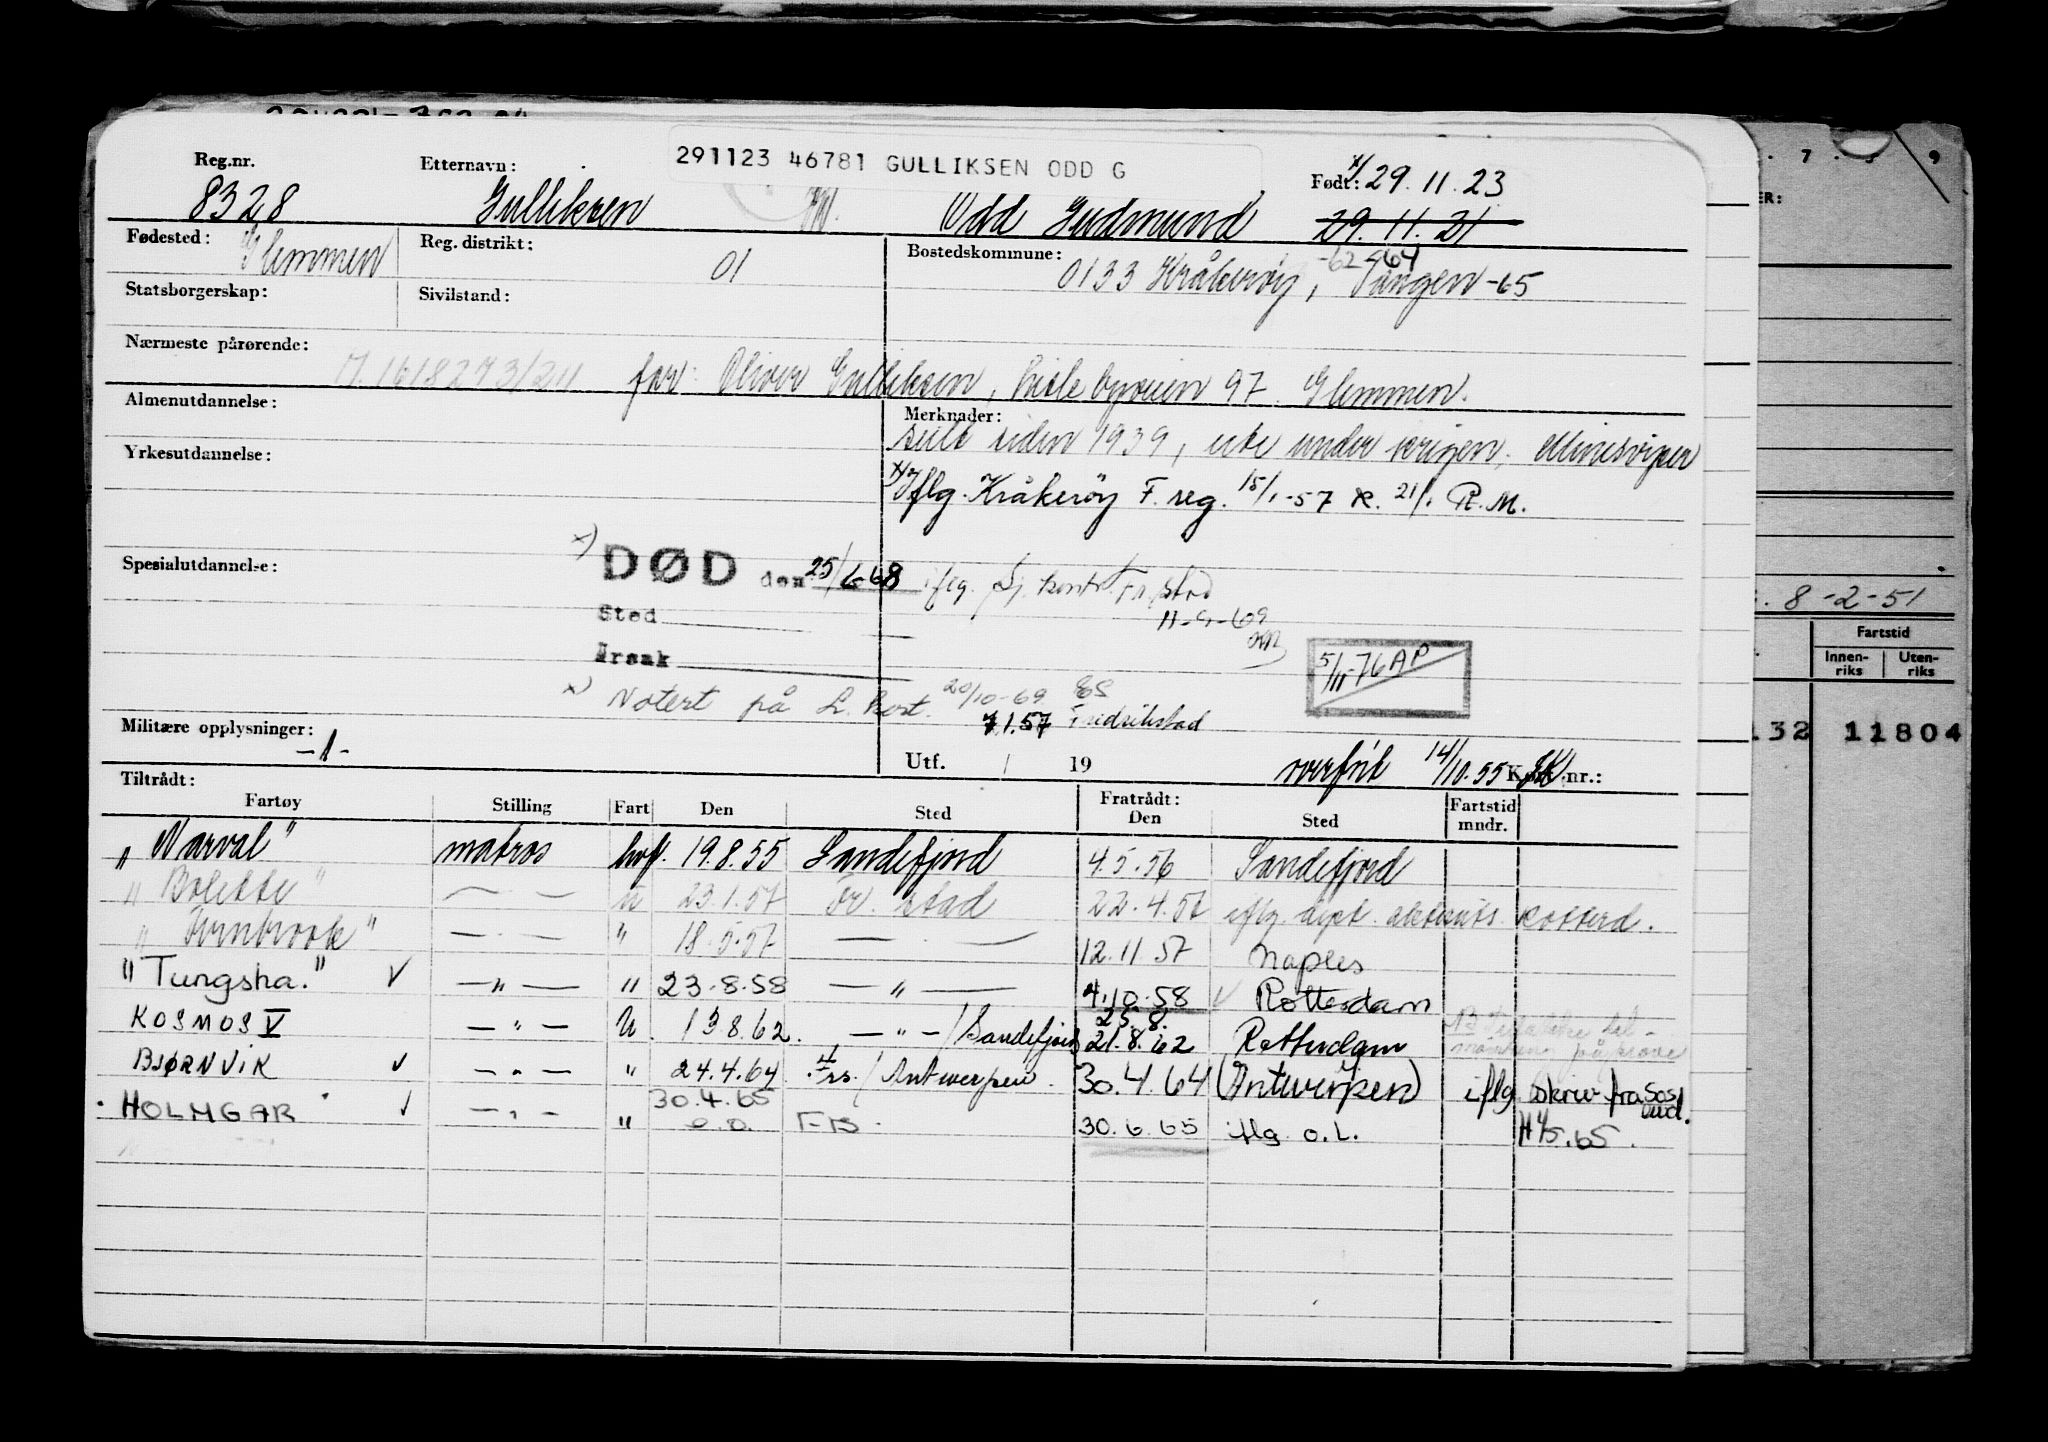 291123 46781 GULLIKSEN ODD G
Reg.nr. Etternavn: Født: x/ 29.11.23
8328 Gulliksen Odd Gudmund 29.11.21
Fødested: Glemmen Reg. distrikt: 01 Bostedskommune: 0133 Kråkerøy, -62 -64 Tangen -65
Statsborgerskap: Sivilstand:
Nærmeste pårørende: far: Oliver Gulliksen, Lislebyveien 97. Glemmen.
Almenutdannelse: Merknader:
seilt siden 1939, ikke under krigen, Minesviper
Yrkesutdannelse:
x) Iflg. Kråkerøy F. reg. 15/1-57 K. 21/1 R.M.
Spesialutdannelse: x) DØD den 25/6-68 iflg. Sj. kont. Fr.stad
11-9-69
Sted
Årsak
5/11-76 AP
x) Notert på L. kort. 20/10-69 ES
7.1.57 Fredrikstad
Militære opplysninger: -1-
Utf. / 19 overført 14/10.55 Kort nr.:
Tiltrådt: Fratrådt:
Fartøy Stilling Fart Den Sted Den Sted Fartstid mndr.
"Narval" matros hvf. 19.8.55 Sandefjord 4.5.56 Sandefjord
"Bolette" — — U 23.1.57 Fr. stad 22.4.57 iflg. hyrekt. Rotterd.
"Fernbrook" — " — " 18.5.57 — " — 12.11.57 Naples
"Tungsha." ✓ — " — " 23.8.58 — " — 4.10.58 ✓ Rotterdam
KOSMOS V — " — U. 13.8.62. — " — / Sandefjord 25.8. 21.8.62 Rotterdam
BJØRNVIK ✓ — " — " 24.4.64 / Antwerpen. 30.4.64 (Antwerpen) iflg skriv fra
HOLMGAR ✓ — " — " 30.4.65 e.o. FTS. 30.6.65 iflg o.L. H 4/5.65.
R: 8-2-51
Fartstid
Innenriks Utenriks
132 11804